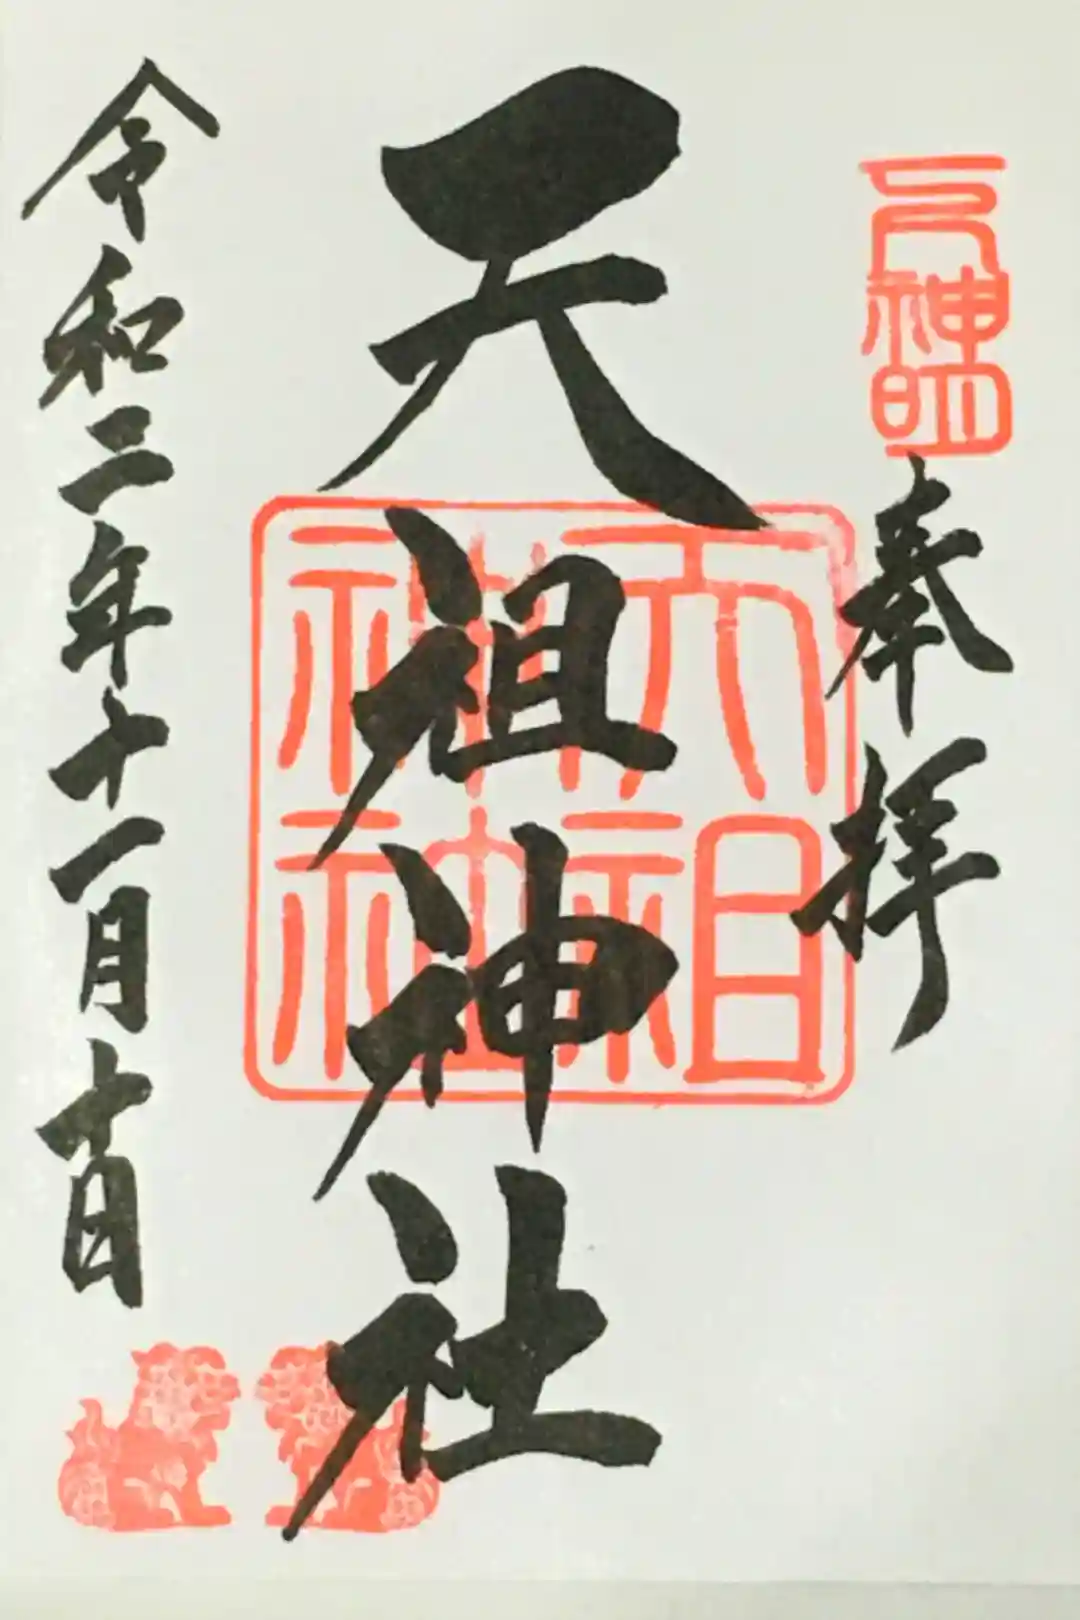 下神明
奉拝
天祖神社
天祖神社
令和二年十一月